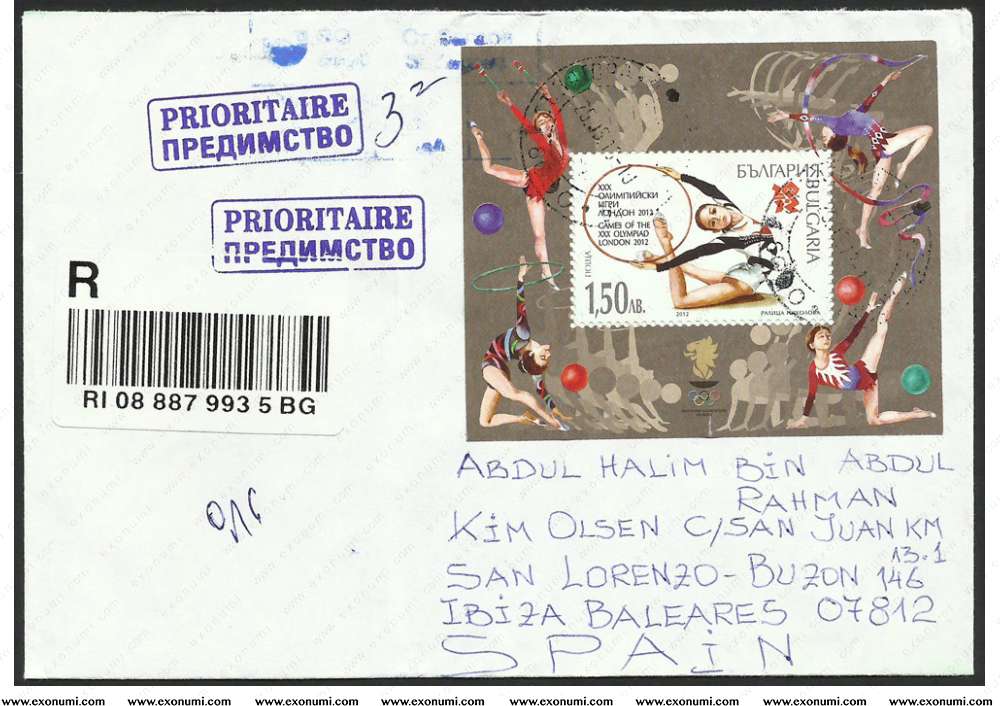 PRIORITAIRE
ПРЕДИМСТВО
PRIORITAIRE
ПРЕДИМСТВО
R
RI 08 887 993 5 BG
БЪЛГАРИЯ
BULGARIA
XXX
ОЛИМПИЙСКИ
ИГРИ
ЛОНДОН 2012
GAMES OF THE
XXX OLYMPIAD
LONDON 2012
ПОЩА
1,50ЛВ.
2012
РАЛИЦА НИКОЛОВА
ABDUL HALIM BIN ABDUL
RAHMAN
KIM OLSEN C/SAN JUAN KM
13.1
SAN LORENZO - BUZON 146
IBIZA BALEARES 07812
SPAIN
www.exonumi.com www.exonumi.com www.exonumi.com www.exonumi.com www.exonumi.com www.exonumi.com www.exonumi.com